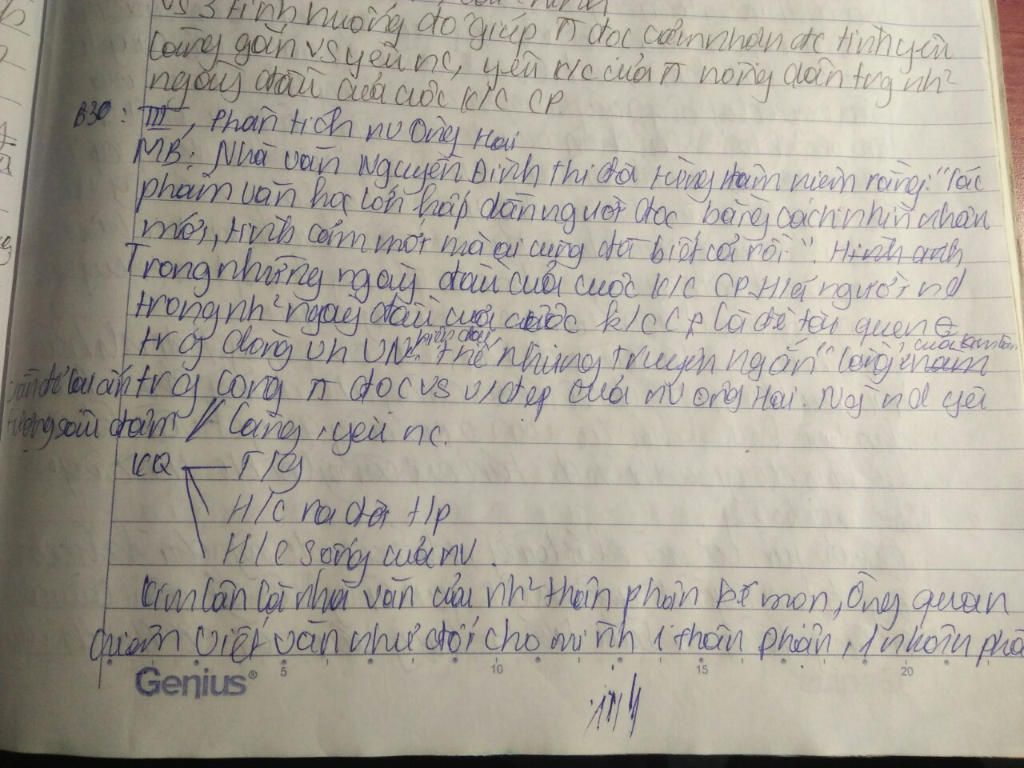 vs 3 tình huống đó giúp n đọc cảm nhận đc tình yêu
làng gắn vs yêu nc, yêu k/c của n nông dân trg nh²
ngày đầu của cuộc k/c CP.
B30: III, Phân tích nv Ông Hai
MB: Nhà văn Nguyễn Đình Thi đã từng niệm rằng: "Tác
phẩm văn học lớn hấp dẫn người đọc bằng cách nhìn nhận
mới, tình cảm mới mà ai cũng đã biết cả rồi". Hình ảnh
Trong những ngày đầu của cuộc k/c CP. H/a người nd
trong nh² ngày đầu của cuộc k/c CP là đề tài quen
trg dòng vh VN thế nhưng truyện ngắn "Làng" của Kim Lân
trg lòng n đọc vs v/đẹp của nv ông Hai. Ng nd yêu
làng, yêu nc.
KQ T/g
H/c ra đời t/p
H/c sống của nv.
Kim Lân là nhà văn của nh² thân phận bé mọn, Ông quan
quan niệm viết văn như đòi cho mình 1 thân phận, 1 nhân phẩ
Genius®
5 10 15 20